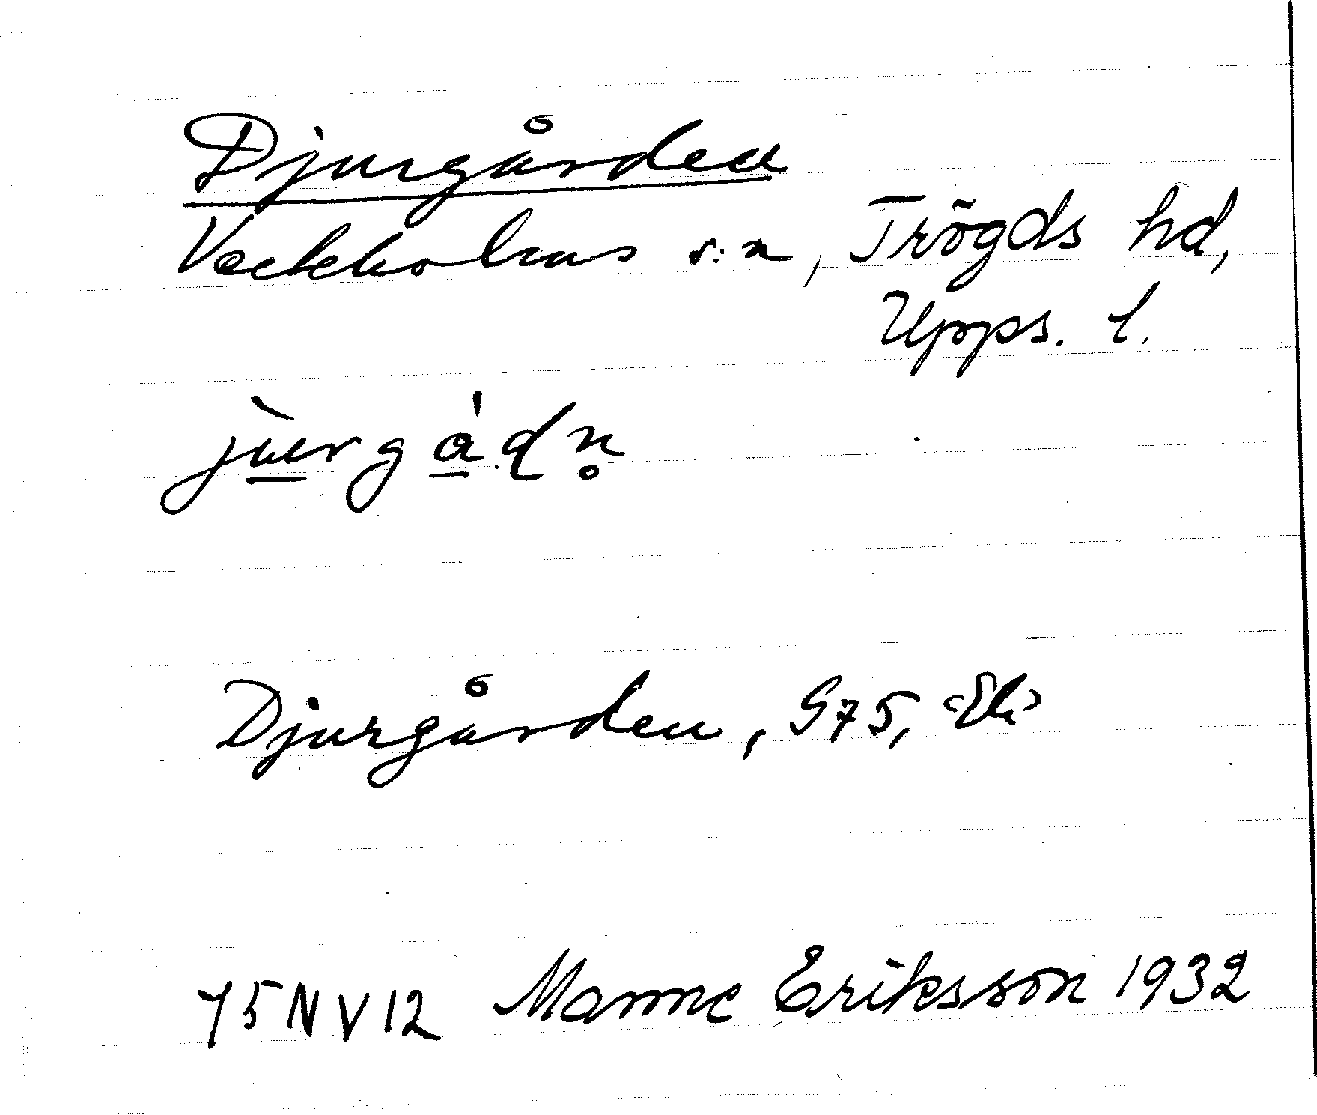 Djurgården
Veckholms s:n, Trögds hd,
Upps. l.
jùrgá̱ḍn̥
Djurgården, G75, Ek
75NV12 Manne Eriksson 1932